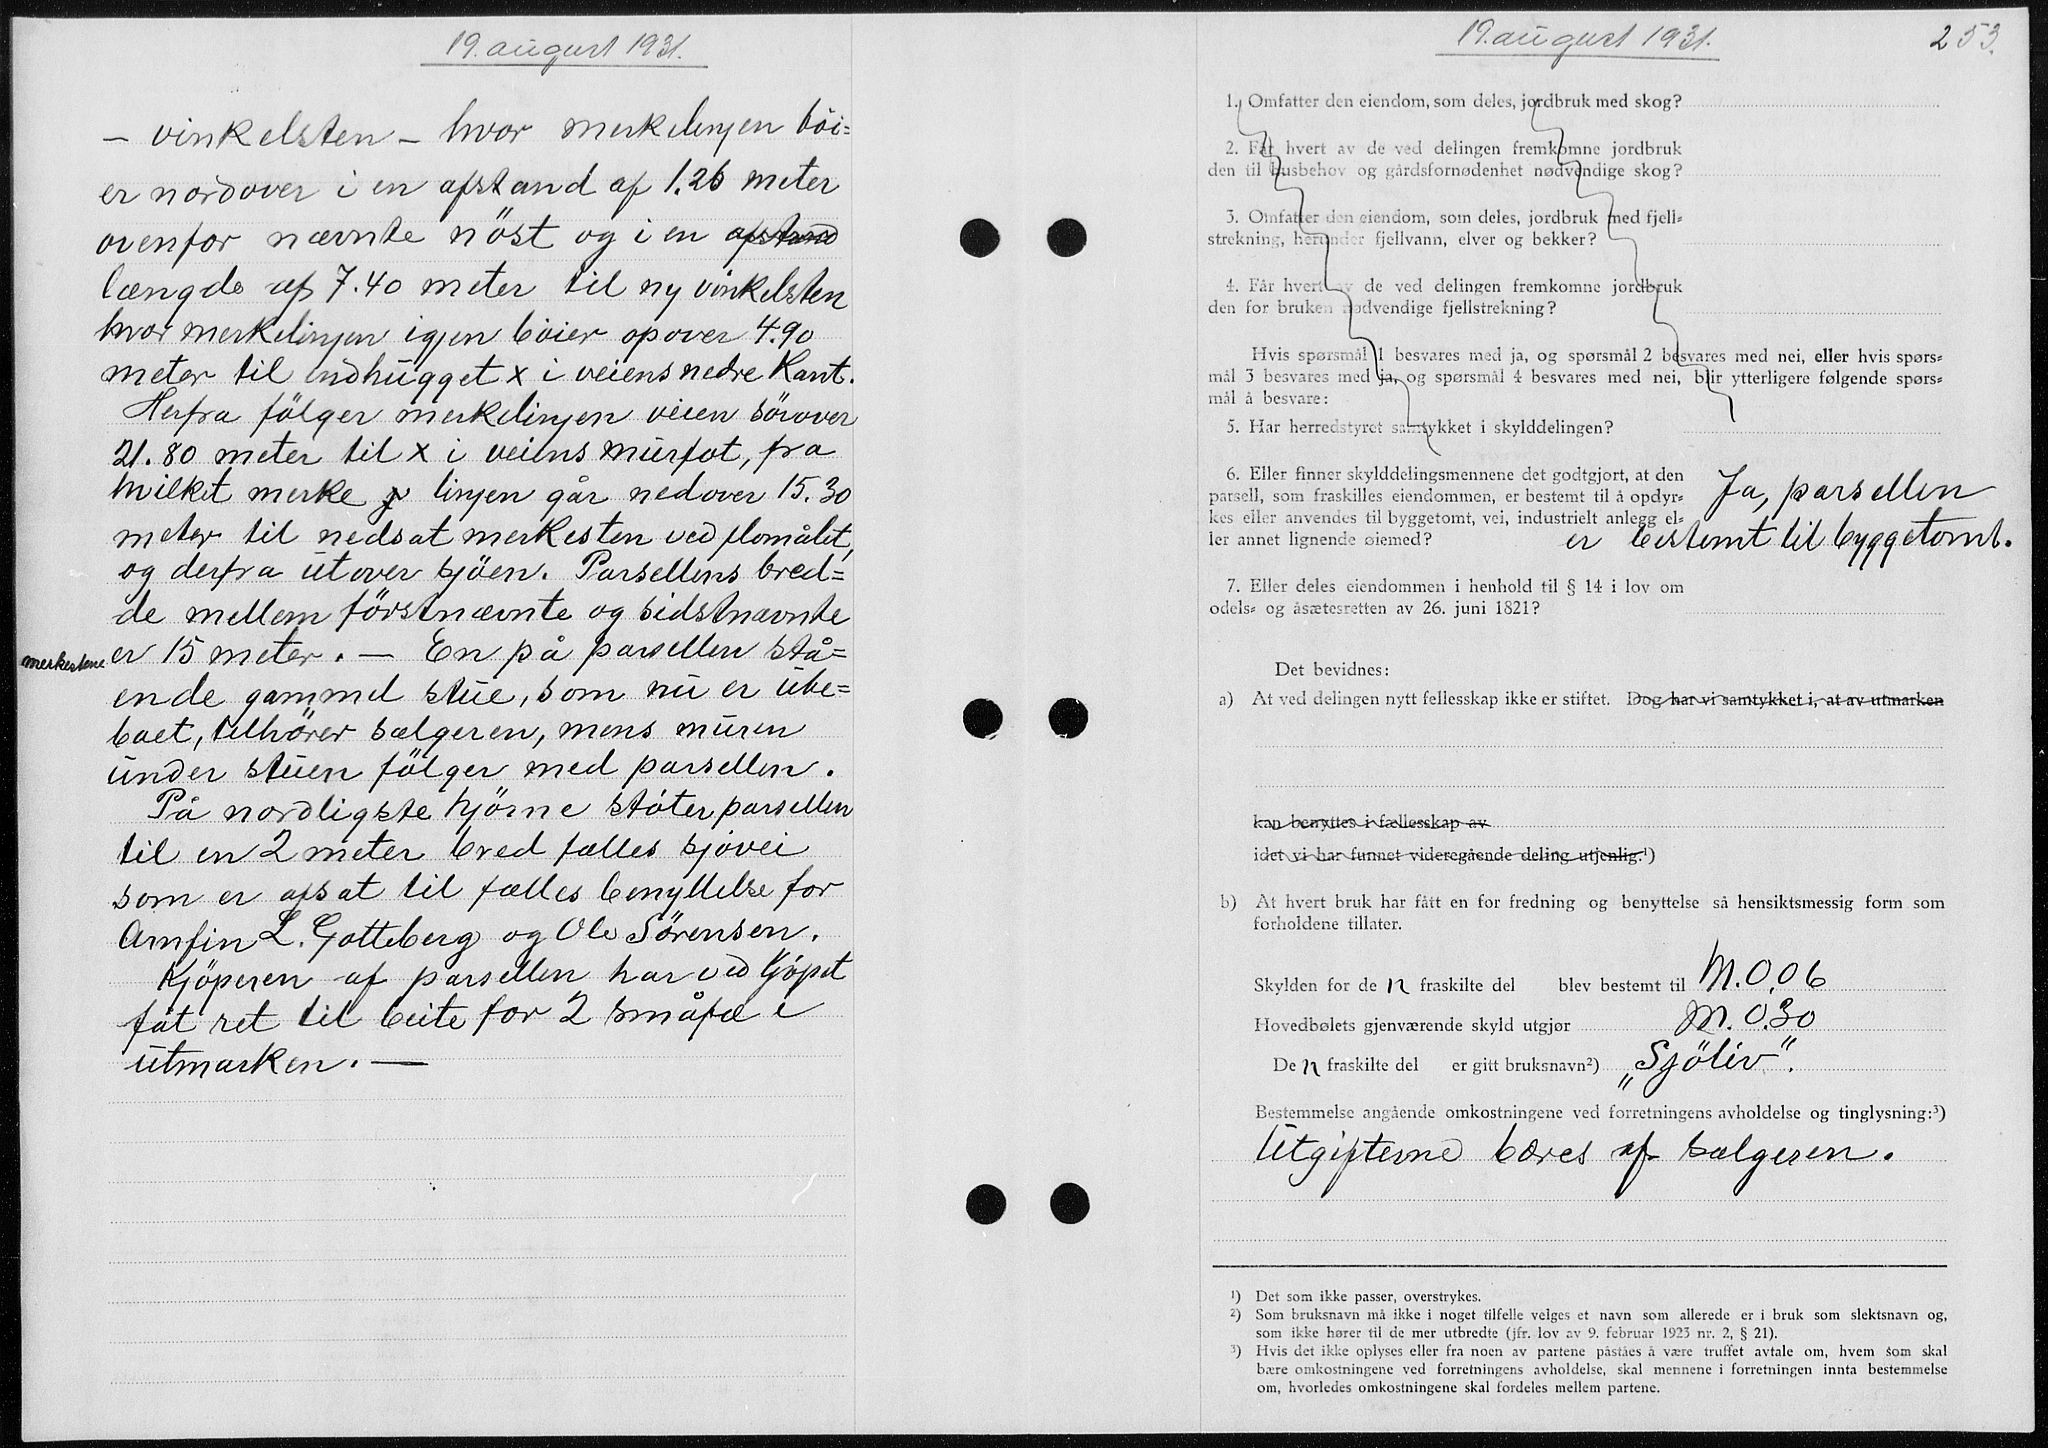 19. august 1931.
– vinkelsten – hvor merkelinjen böi=
er nordover i en afstand af 1.26 meter
ovenfor nævnte nöst og i en afstand
længde af 7.40 meter til ny vinkelsten
hvor merkelinjen igjen böier opover 4.90
meter til indhugget x i veiens nedre kant.
Herfra fölger merkelinjen veien sörover
21.80 meter til x i veiens murfot, fra
hvilket merke linjen går nedover 15.30
meter til nedsat merkesten ved flomålet,
og derfra utover sjöen. Parsellens bred=
de mellem förstnævnte og sidstnævnte
merkestene er 15 meter. – En på parsellen stå=
ende gammel stue, som nu er ube=
boet, tilhörer sælgeren, mens muren
under stuen fölger med parsellen.
På nordligste hjörne stöter parsellen
til en 2 meter bred fælles sjövei
som er afsat til fælles benyttelse for
Arnfin L. Gotteberg og Ole Sörensen.
Kjöperen af parsellen har ved kjöpet
fåt ret til beite for 2 småfæ i
utmarken. —
19. august 1931.
253.
1. Omfatter den eiendom, som deles, jordbruk med skog?
2. Får hvert av de ved delingen fremkomne jordbruk
den til husbehov og gårdsfornødenhet nødvendige skog?
3. Omfatter den eiendom, som deles, jordbruk med fjell=
strekning, herunder fjellvann, elver og bekker?
4. Får hvert av de ved delingen fremkomne jordbruk
den for bruken nødvendige fjellstrekning?
Hvis spørsmål 1 besvares med ja, og spørsmål 2 besvares med nei, eller hvis spørs=
mål 3 besvares med ja, og spørsmål 4 besvares med nei, blir ytterligere følgende spørs=
mål å besvare:
5. Har herredstyret samtykket i skylddelingen?
6. Eller finner skylddelingsmennene det godtgjort, at den
parsell, som fraskilles eiendommen, er bestemt til å opdyr=
kes eller anvendes til byggetomt, vei, industrielt anlegg el=
ler annet lignende øiemed?
Ja, parsellen
er bestemt til byggetomt.
7. Eller deles eiendommen i henhold til § 14 i lov om
odels= og åsætesretten av 26. juni 1821?
Det bevidnes:
a) At ved delingen nytt fellesskap ikke er stiftet. Dog har vi samtykket i, at av utmarken
kan benyttes i fællesskap av
idet vi har funnet videregående deling utjenlig.¹)
b) At hvert bruk har fått en for fredning og benyttelse så hensiktsmessig form som
forholdene tillater.
Skylden for de n fraskilte del blev bestemt til M. 0,06
Hovedbølets gjenværende skyld utgjør M. 0.30
De n fraskilte del er gitt bruksnavn²) „Sjöliv".
Bestemmelse angående omkostningene ved forretningens avholdelse og tinglysning:³)
Utgifterne bæres af sælgeren.
¹) Det som ikke passer, overstrykes.
²) Som bruksnavn må ikke i noget tilfelle velges et navn som allerede er i bruk som slektsnavn og,
som ikke hører til de mer utbredte (jfr. lov av 9. februar 1923 nr. 2, § 21).
³) Hvis det ikke oplyses eller fra noen av partene påståes å være truffet avtale om, hvem som skal
bære omkostningene ved forretningens avholdelse, skal mennene i forretningen innta bestemmelse
om, hvorledes omkostningene skal fordeles mellem partene.